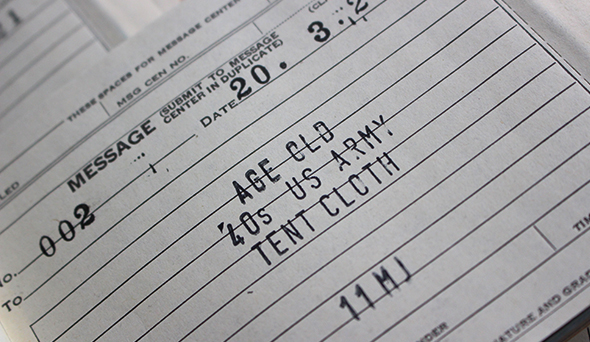 THESE SPACES FOR MESSAGE CENTER
MSG CEN NO.
MESSAGE (SUBMIT TO MESSAGE
CENTER IN DUPLICATE)
DATE 20. 3.2
No. 002
To
AGE CLD
'40s US ARMY
TENT CLCTH
11 MJ